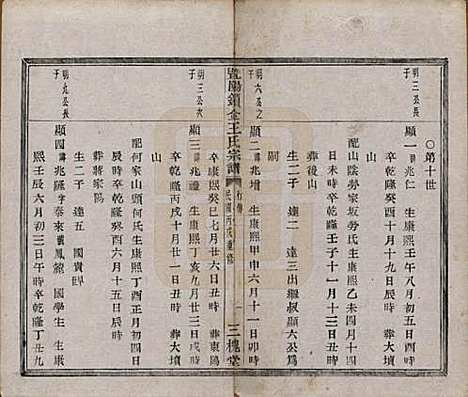 ○第十世
明二公長
子
顯一諱兆仁 生康熙壬午八月初五日酉時
卒乾隆癸酉十月十九日辰時 葬大墳
山
配山陰勞家坂勞氏生康熙乙未四月十四
日未時卒乾隆壬子十月十三日時
葬後山
生二子 達二 達三出繼叔顯六公爲
嗣
明六公之
子
顯二諱兆增 生康熙甲申六月十一日卯時
暨陽鎖金王氏宗譜
三槐堂
卒康熙癸巳七月廿六日時 葬東陽
明三公次
子
顯三 兆禮 生康熙丁亥九月廿日丑時
卒乾隆丙戌十月廿一日丑時 葬大墳
山
配何家山頭何氏生康熙丁酉正月初四日
辰時卒乾隆癸酉六月十五日辰時
葬蔣家陽
生二子 達五 國賓
明九公長
子
顯四諱兆隆字泰來號鳳銘 國學生 生康
熙壬辰六月初三日午時卒乾隆丁丑九